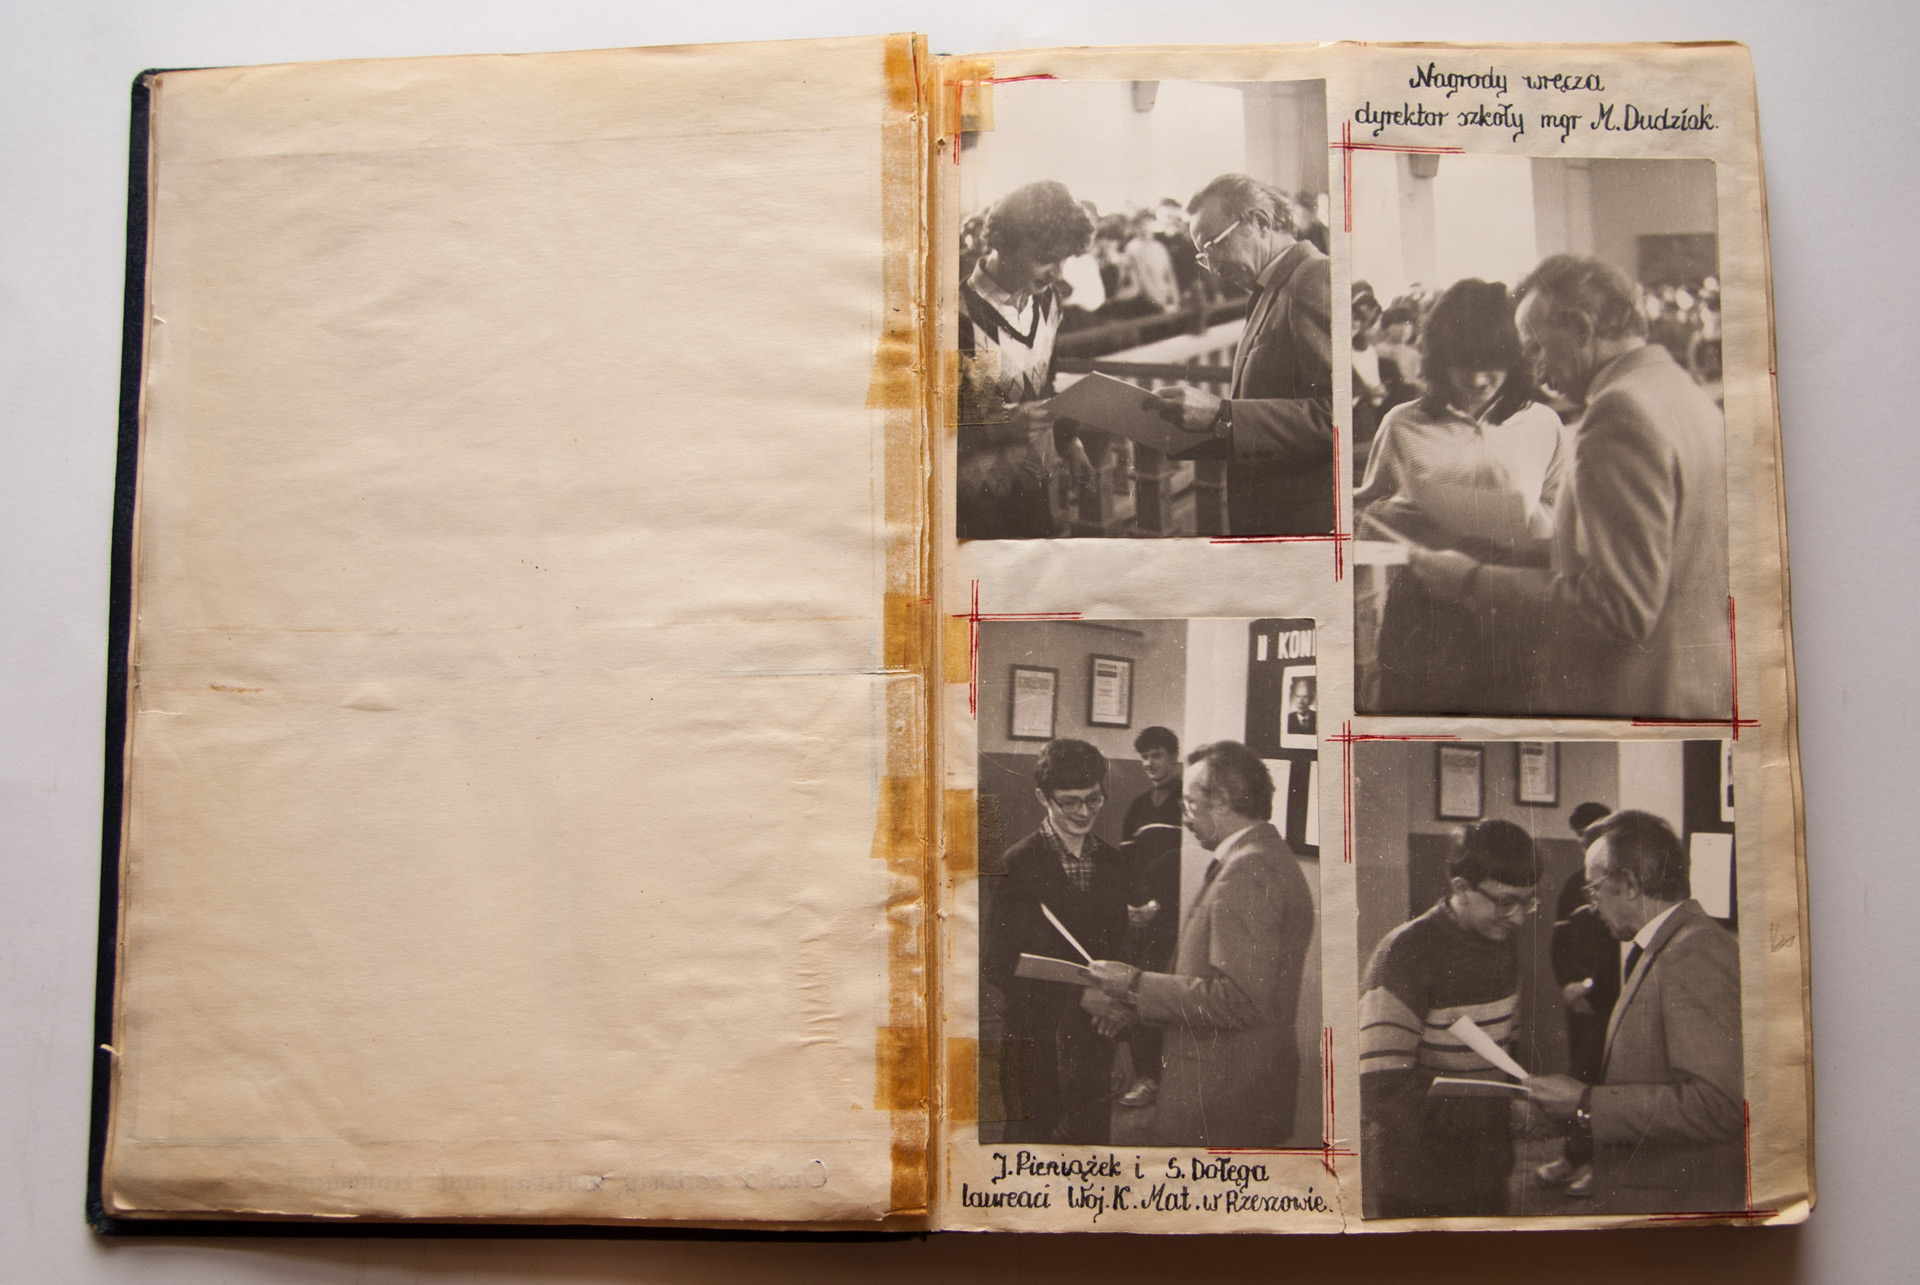 Nagrody wręcza
dyrektor szkoły mgr M. Dudziak.
N KON
J. Pieniążek i S. Dołęga
laureaci Woj. K. Mat. w Rzeszowie.